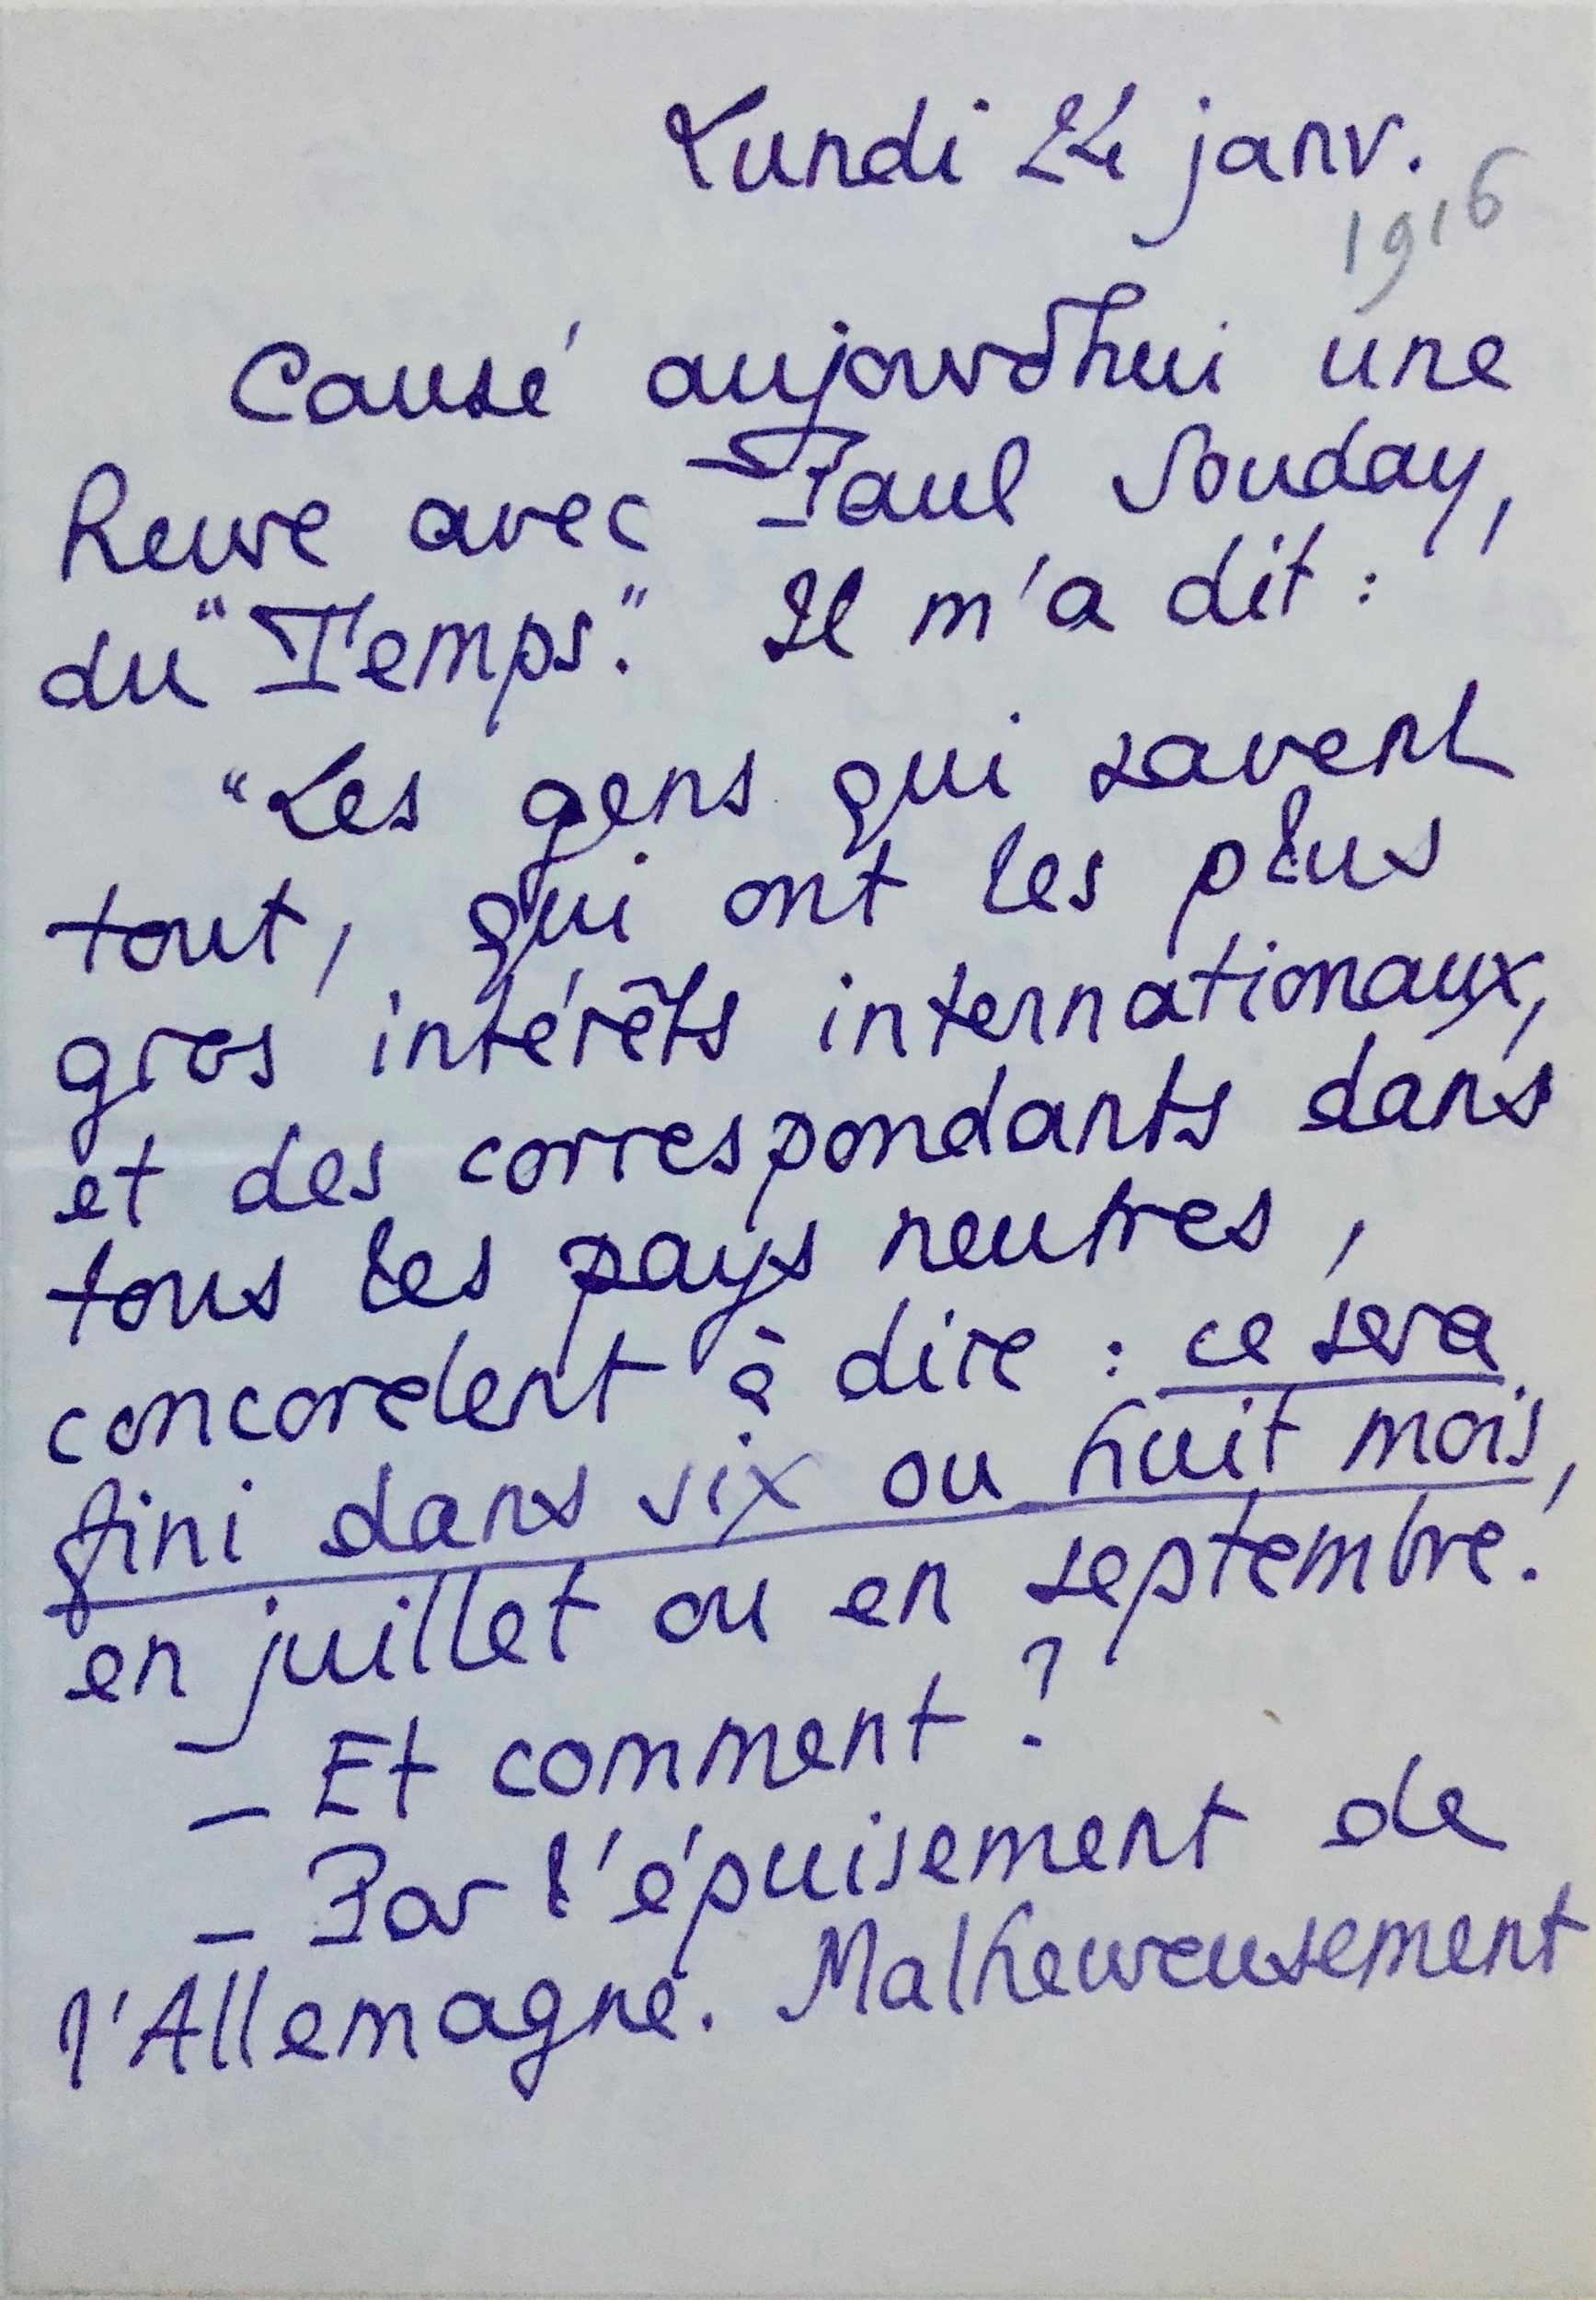 Lundi 24 janv.
1916
Causé aujourd'hui une
heure avec Paul Souday,
du "Temps." Il m'a dit :
"Les gens qui savent
tout, qui ont les plus
gros intérêts internationaux,
et des correspondants dans
tous les pays neutres,
concordent à dire : ce sera
fini dans six ou huit mois,
en juillet ou en septembre.
– Et comment ?
– Par l'épuisement de
l'Allemagne. Malheureusement